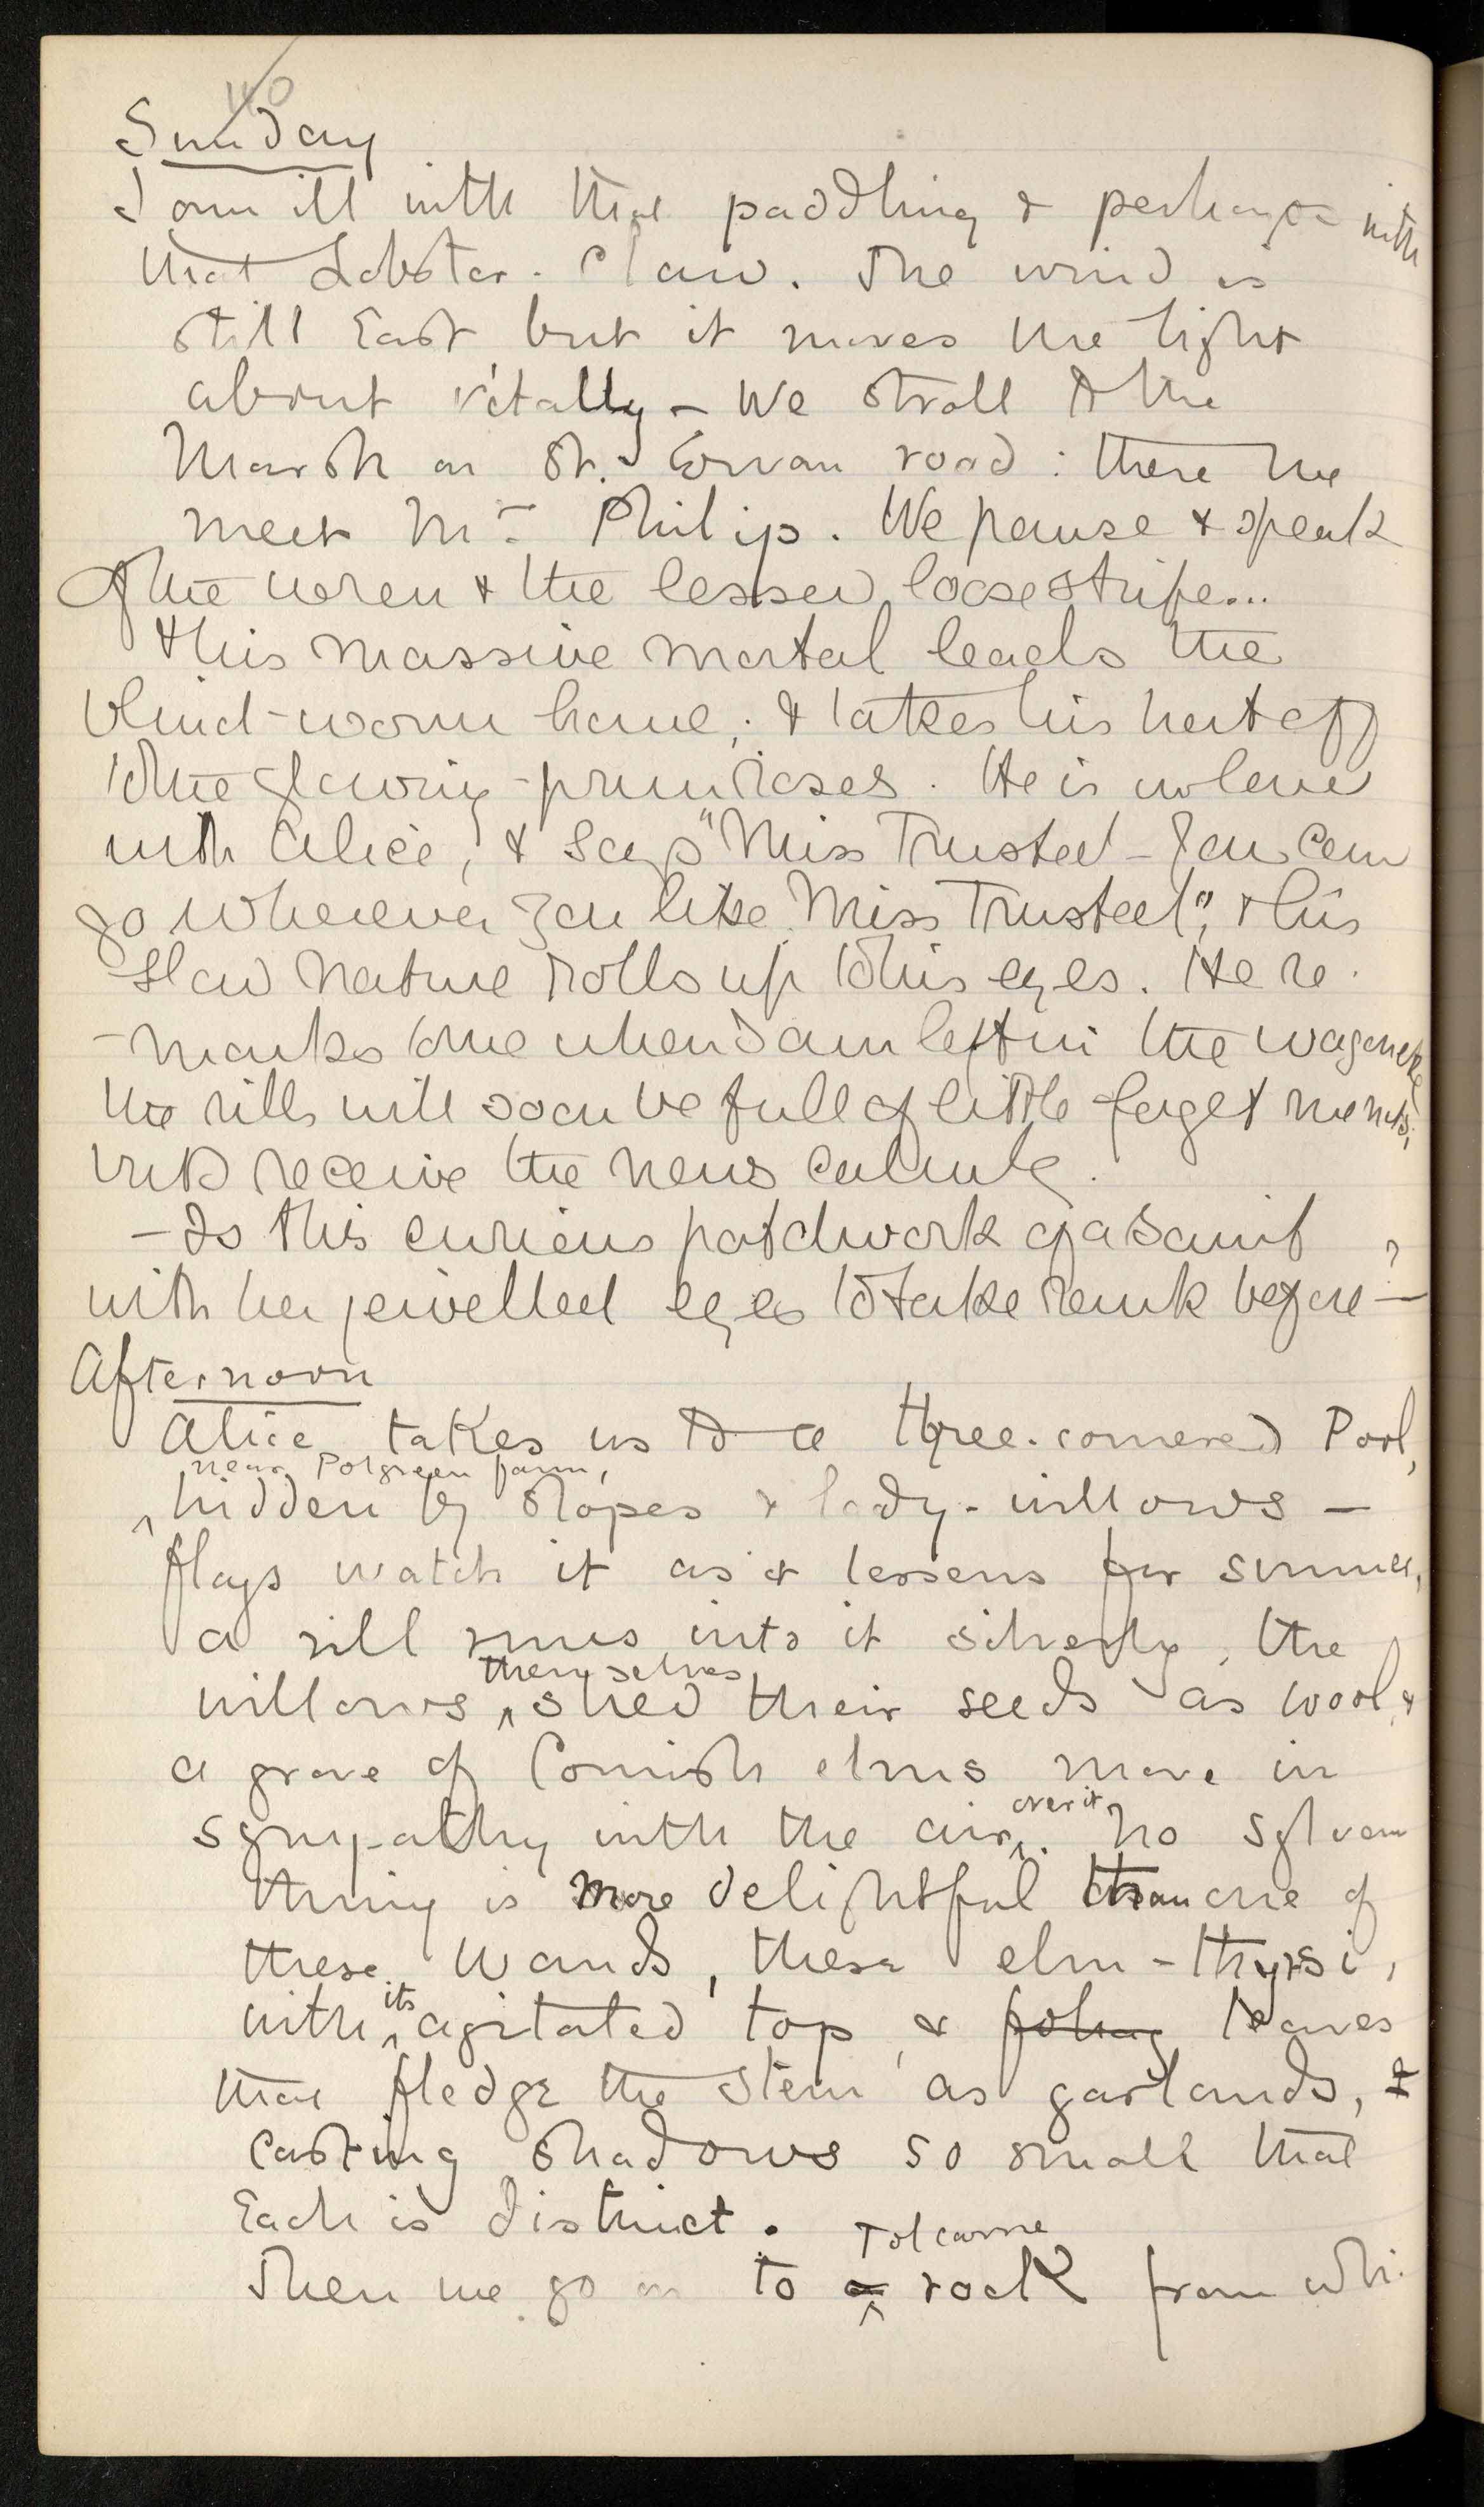 40
Sunday
I am ill with that paddling & perhaps with
that Lobster-Claw. The wind is
still East but it moves the light
about vitally - We stroll to the
Marsh on St. Ervan road: there we
meet Mr Philip. We pause & speak
of the wren & the lesser loosestrife...
this massive mortal leads the
blind-worm home; & takes his hat off
to the glowing primroses. He is in love
with Alice, & says "Miss Trusted - you can
go wherever you like Miss Trusted", & his
slow nature rolls up to his eyes. He re-
-marks to me when I am left in the wagonette
the rills will soon be full of little forget me nots;
but I receive the news calmly.
- Is this curious patchwork of a saint
with her jewelled eyes to take rank before - ?
Afternoon
Alice takes us to a three-cornered Pool,
near Polgreen farm,
hidden by slopes & lady-willows -
flags watch it as it lessens for summer,
a rill runs into it silverly, the
themselves
willows shed their seeds as wool, &
a grove of Cornish elms move in
over it
sympathy with the air. No sylvan
thing is more delightful than one of
these wands, these elm-thyrsi,
its
with agitated top, & foliag leaves
that fledge the stem as garlands, &
casting shadows so small that
Each is distinct.
Tolcarne
Then we go on to a rock from whi-